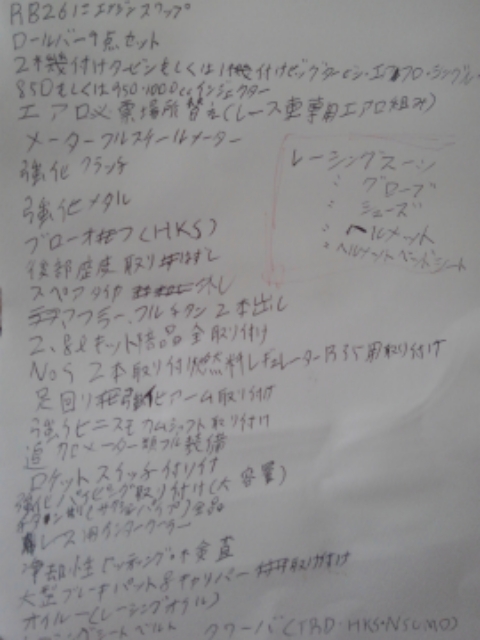 RB26にエンジンスワップ
ロールバー9点セット
2機付けタービンもしくは1機付けビッグタービン・エアフロ・シングル
850もしくは950・1000ccインジェクター
エアロ必要場所替え(レース車専用エアロ組み)
メーターフルスケールメーター
強化クラッチ
強化メタル
ブローオフ(HKS)
後部座席取りはずし
スペアタイヤ外し
マフラー、フルチタン2本出し
2,8lキット結品全取り付け
NoS 2本取り付け燃料レギュレーターR35用取り付け
足回り強化アーム取り付け
強化ニスモカムシャフト取り付け
追加メーター類フル装備
ロケットスイッチ付け
強化パイピング取り付け(大容量)
レース用インタークーラー
冷却性
大型ブレーキパット&キャリパー取り付け
オイル(レーシングオイル)
シートベルト
(TRD・HKS・NSUMO)
レーシングスーツ
〃 グローブ
〃 シューズ
〃 ヘルメット
〃 ヘルメットヘッドシート